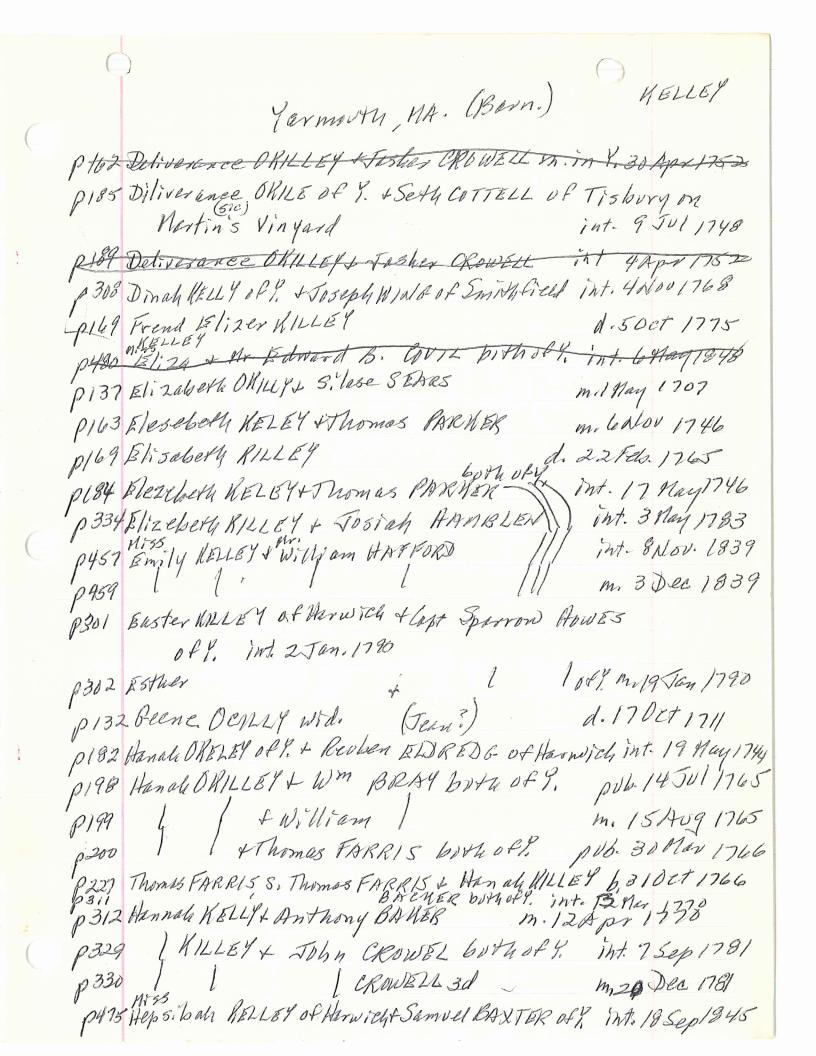 KELLEY
Yarmouth, MA. (Barn.)
p162 Deliverance OKILLEY & Jasher CROWELL m. in Y. 30 Apr 1752
p185 Diliverance OKILE of Y. & Seth COTTELL of Tisbury on
(sic)
Martin's Vinyard int. 9 Jul 1748
p189 Deliverance OKILLEY & Jasher CROWELL int 4 Apr 1752
p308 Dinah KELLY of Y. & Joseph WING of Smithfield int. 4 Nov 1768
p169 Frend Elizer KILLEY d. 5 Oct 1775
Miss KELLEY
p480 Eliza & Mr Edward B. COVIL both of Y. int. 6 May 1848
p137 Elizabeth OKILLY & Silase SEARS m. 1 May 1707
p163 Elesebeth KELEY & Thomas PARKER m. 6 Nov 1746
p169 Elisabeth KILLEY d. 22 Feb. 1765
both of Y.
p184 Elezebeth KELEY & Thomas PARKER int. 17 May 1746
p334 Elizebeth KILLEY & Josiah HAMBLEN int. 3 May 1783
Miss Mr.
p457 Emily KELLEY & William HAFFORD int. 8 Nov. 1839
p459 m. 3 Dec 1839
p301 Easter KILLEY of Harwich & Capt Sparrow HOWES
of Y. int. 2 Jan. 1790
p302 Esther & of Y. m. 19 Jan 1790
p132 Geene OCILLY wid. (Jean?) d. 17 Oct 1711
p182 Hanah OKELEY of Y. & Reuben ELDREDG of Harwich int. 19 May 1744
p198 Hanah OKILLEY & Wm BRAY both of Y. pub. 14 Jul 1765
p199 & William m. 15 Aug 1765
p200 & Thomas FARRIS both of Y. pub. 30 Mar 1766
p227 Thomas FARRIS s. Thomas FARRIS & Hanah KILLEY b. 31 Oct 1766
p311 BACKER both of Y. int. 12 Mar 1778
p312 Hannah KELLY & Anthony BAKER m. 12 Apr 1778
p329 KILLEY & John CROWEL both of Y. int. 7 Sep 1781
p330 CROWELL 3d m. 20 Dec 1781
Miss
p475 Hepsibah KELLEY of Harwich & Samuel BAXTER of Y. int. 18 Sep 1845